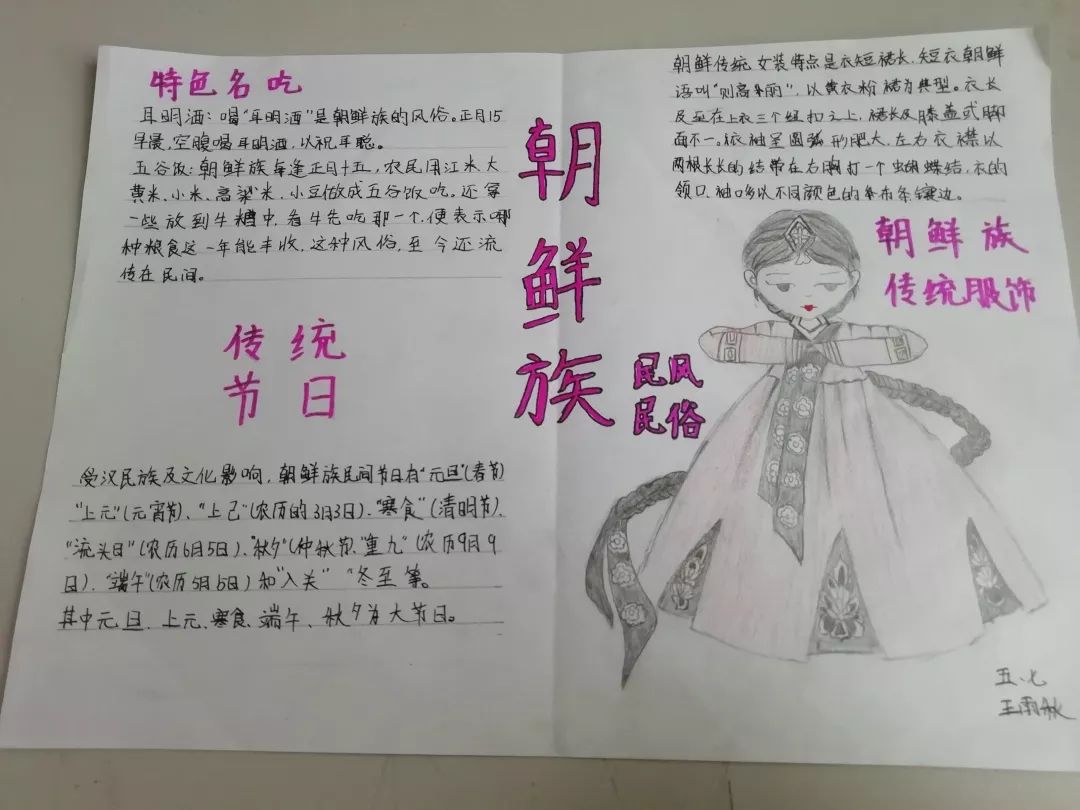 特色名吃
耳明酒：喝“耳明酒”是朝鲜族的风俗。正月15
早晨，空腹喝耳明酒，以祝耳聪。
五谷饭：朝鲜族每逢正月十五，农民用江米大
黄米、小米、高粱米、小豆做成五谷饭吃。还拿
一些放到牛槽中，看牛先吃那一个，便表示哪
种粮食这一年能丰收，这种风俗，至今还流
传在民间。
传统
节日
受汉民族及文化影响，朝鲜族民间节日有“元旦”(春节)
“上元”(元宵节)、“上己”(农历的3月3日)、“寒食”(清明节)、
“流头日”(农历6月5日)、“秋夕”(仲秋节)、“重九”(农历9月9
日)、“端午”(农历5月5日)和“入关”“冬至等。
其中元旦、上元、寒食、端午、秋夕为大节日。
朝鲜族
民风
民俗
朝鲜传统女装特点是衣短裙长，短衣朝鲜
语叫“则高利”，以黄衣粉裙为典型。衣长
及至在上衣三个纽扣之上，裙长及膝盖式脚
面不一。衣袖呈圆弧形肥大，左右衣襟以
两根长长的结带在右胸打一个蝴蝶结，衣的
领口、袖口多以不同颜色的布条镶边。
朝鲜族
传统服饰
五、七
王雨秋